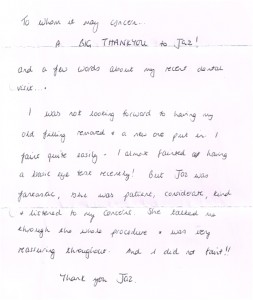 To whom it may concern...
A BIG THANKYOU to JAZ!
and a few words about my recent dental
visit...
I was not looking forward to having my
old filling removed & a new one put in. I
faint quite easily - I almost fainted at having
a basic eye test recently! But JAZ was
fantastic, she was patient, considerate, kind
& listened to my concerns. She talked me
through the whole procedure & was very
reassuring throughout. And I did not faint!!
Thank you JAZ.